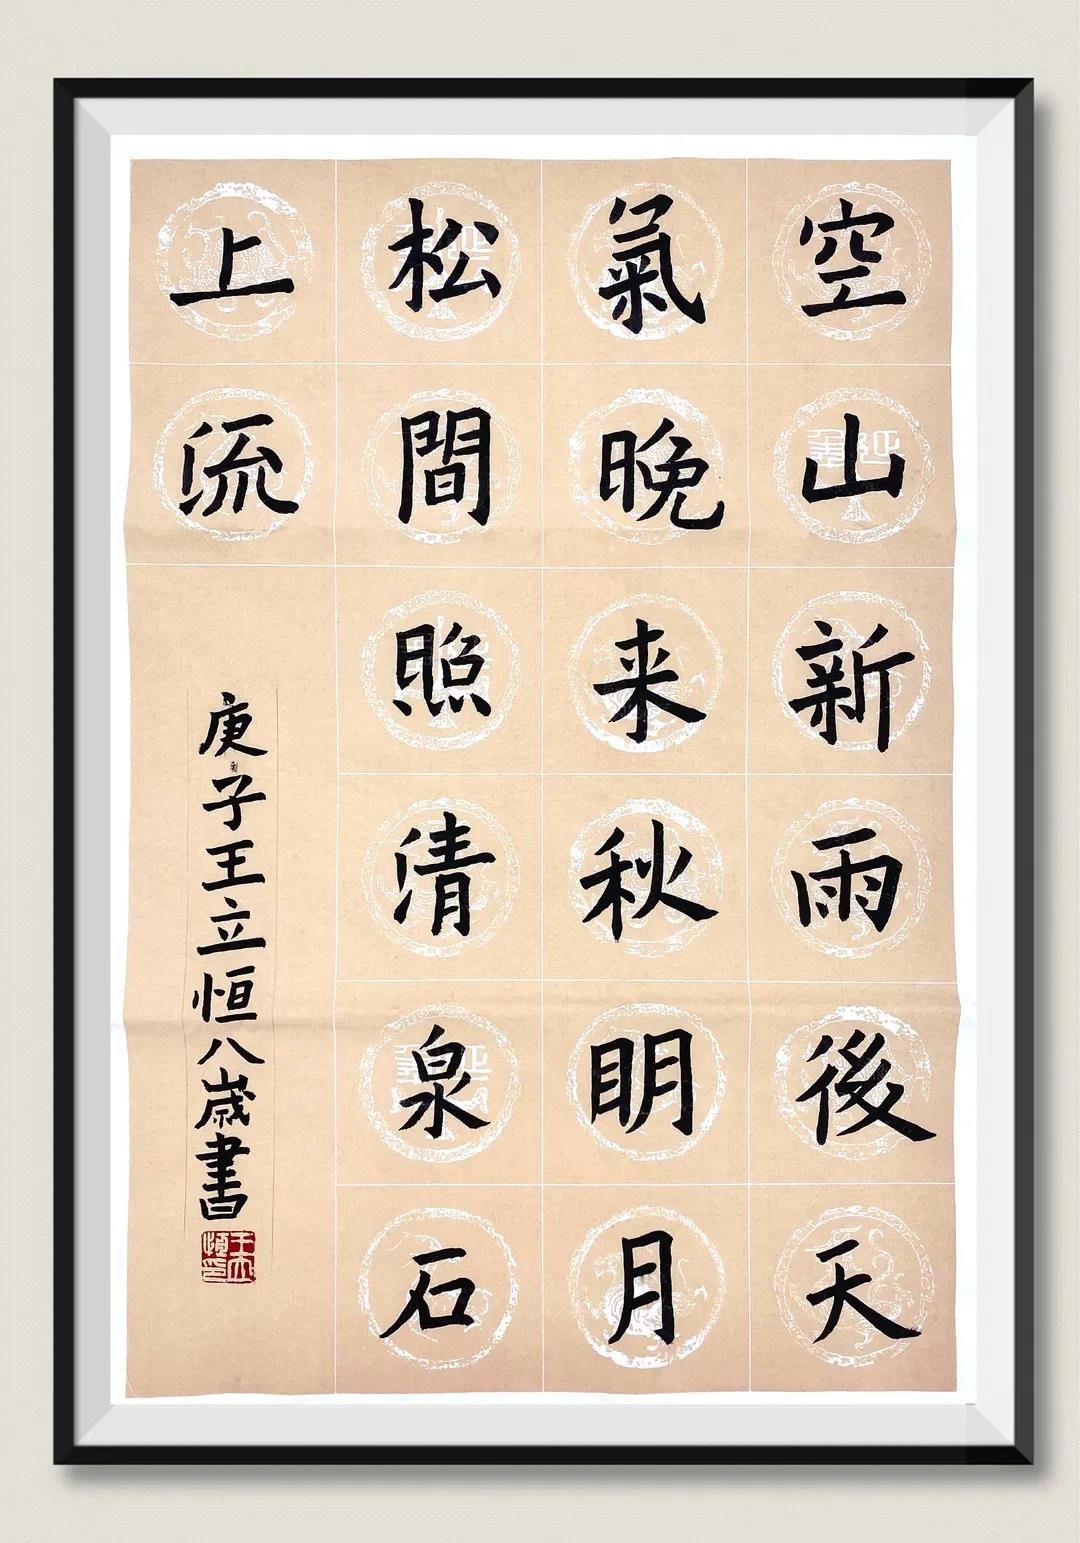 空山新雨後天
氣晚来秋明月
松間照清泉石
上流
庚子王立恒八歳書